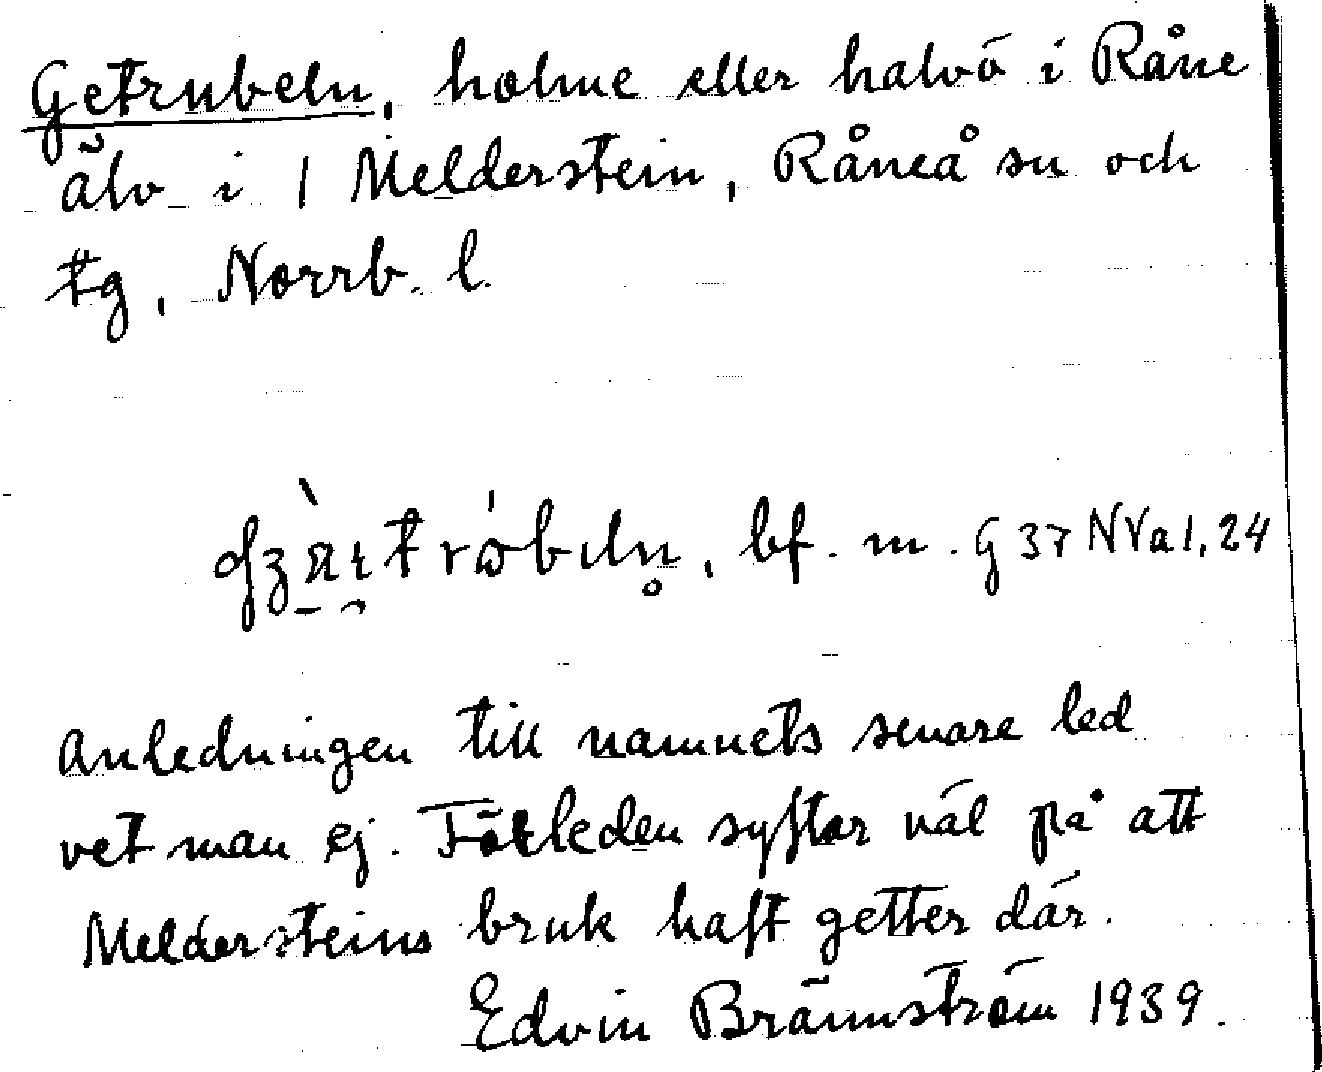 Getrubeln, holme eller halvö i Råne
älv i 1 Melderstein, Råneå sn och
tg, Norrb. l.
bf. m. G 37 NVa1, 24
Anledningen till namnets senare led
vet man ej. Förleden syftar väl på att
Meldersteins bruk haft getter där.
Edvin Brännström 1939.